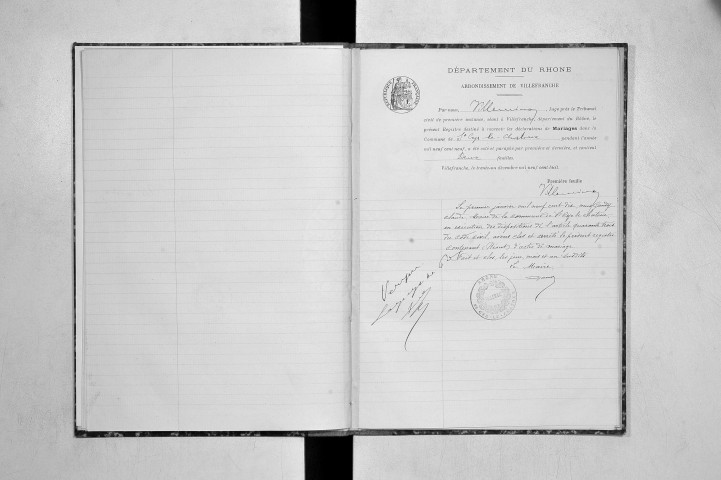 DÉPARTEMENT DU RHONE
ARRONDISSEMENT DE VILLEFRANCHE
Par nous, Juge près le Tribunal
civil de première instance, séant à Villefranche, département du Rhône, le
présent Registre destiné à recevoir les déclarations de Mariages dans la
Commune de St Cyr le Chatoux pendant l'année
mil neuf cent neuf, a été coté et paraphé par première et dernière, et contient
feuilles
Villefranche, le trente au décembre mil neuf cent huit.
Première feuille
Le premier janvier mil neuf cent dix, nous
Maire de la commune de St Cyr le Chatoux
en exécution des dispositions de l'article quarante trois
du code civil, avons clos et arrêté le présent registre
contenant d'actes de mariage
Fait et clos les jour, mois et an susdits
Le Maire